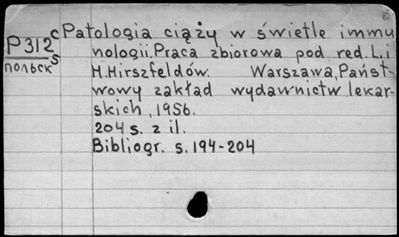 c Patologia ciąży w świetle immu
P312 nologii. Praca zbiorowa pod red. L. i
польск s H. Hirszfeldów. Warszawa, Państ-
wowy zakład wydawnictw lekar-
skich, 1956.
204 s. z il.
Bibliogr. s. 194-204